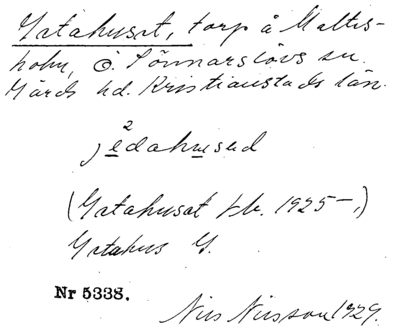 Gatahuset, torp å Maltes-
holm, Ö. Sönnarslövs sn.
Gärds hd. Kristianstads län.
(Gatahuset 1925-,)
Gatahus G.
Nr 5338.
Nils Nilsson 1929.